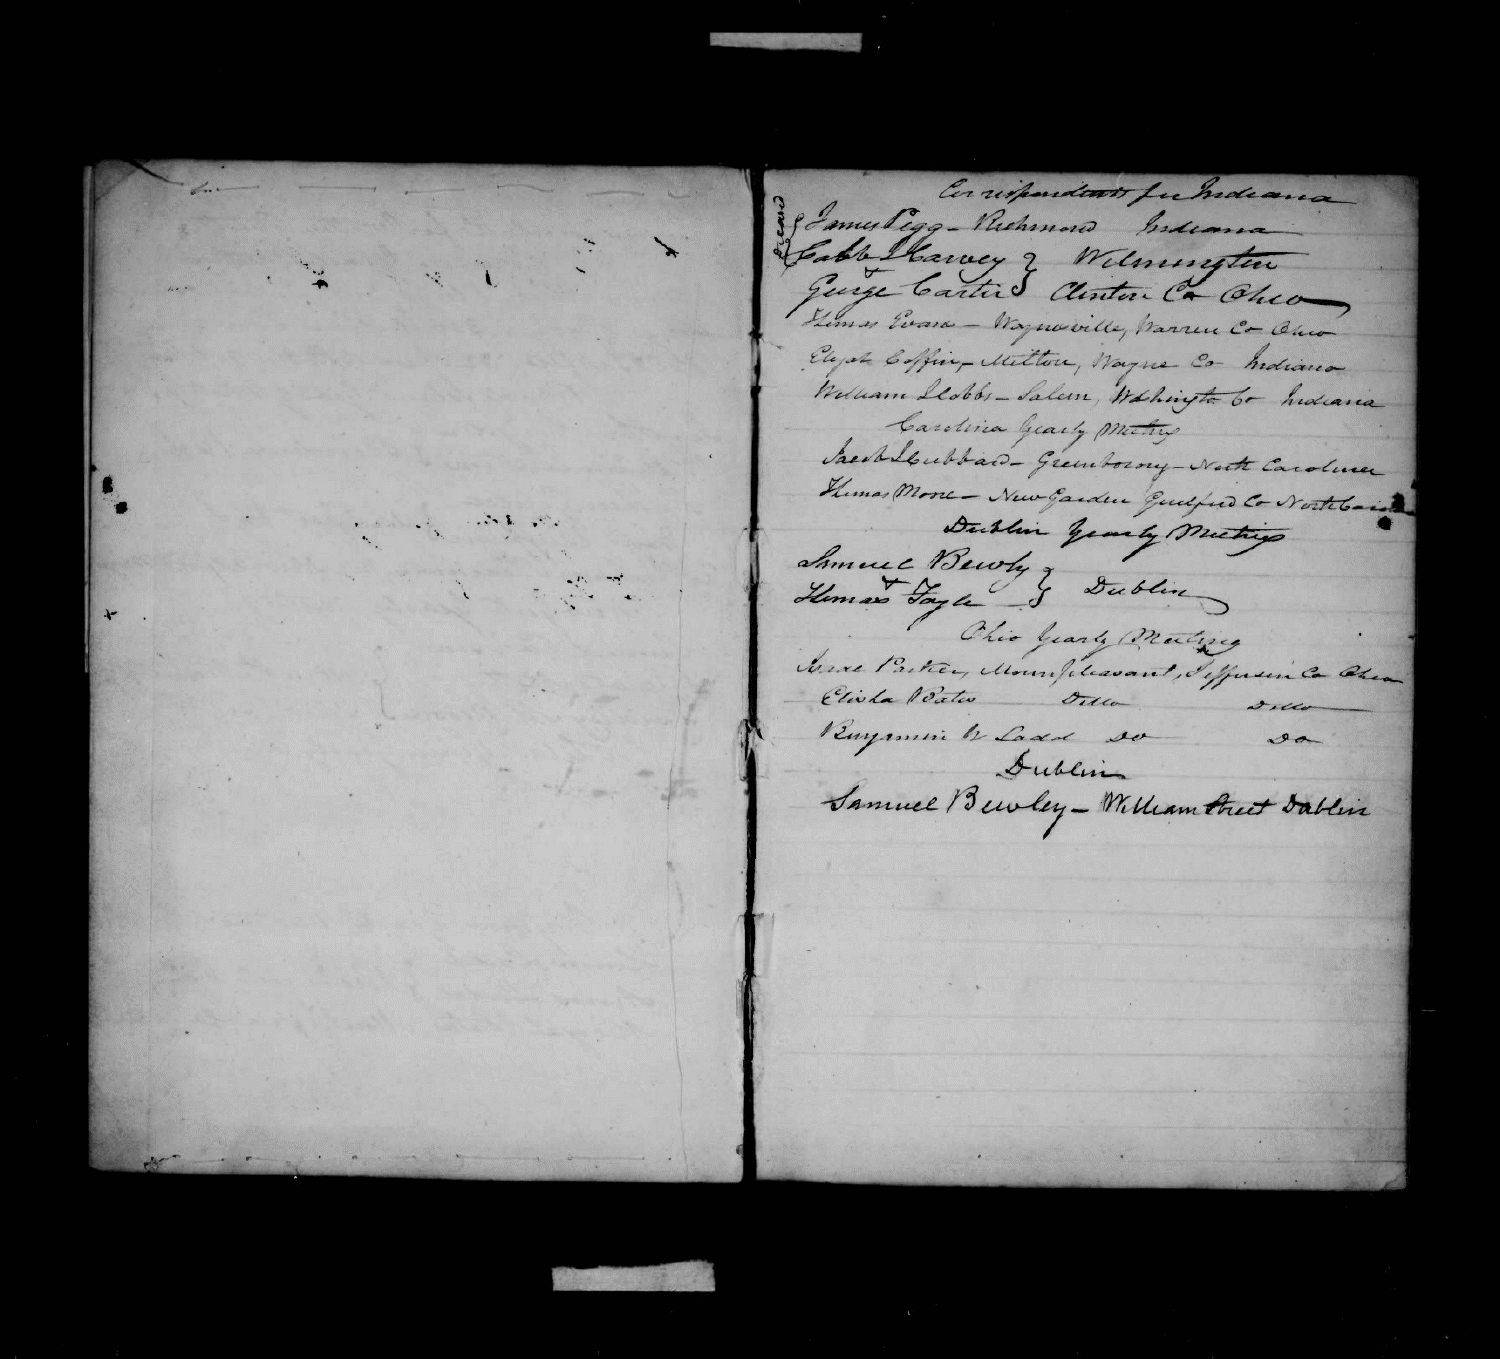 Correspondents for Indiana
deceased
James Pegg - Richmond Indiana
Caleb Harvey } Wilmington
&
George Carter } Clinton Co Ohio
Thomas Evans - Waynesville, Warren Co Ohio
Elijah Coffin, - Milton, Wayne Co Indiana
William Hobbs - Salem, Washington Co Indiana
Carolina Yearly Meeting
Jacob Hubbard - Greensborog - North Carolina
Thomas Moore - New Garden Guilford Co North
Dublin Yearly Meeting
Samuel Bewly
& } Dublin
Thomas Fayle
Ohio Yearly Meeting
Parker, Mountpleasant, Jefferson Co Ohio
Elisha Bates Ditto Ditto
Benjamin W Ladd Do Do
Dublin
Samuel Bewley - William Street Dublin